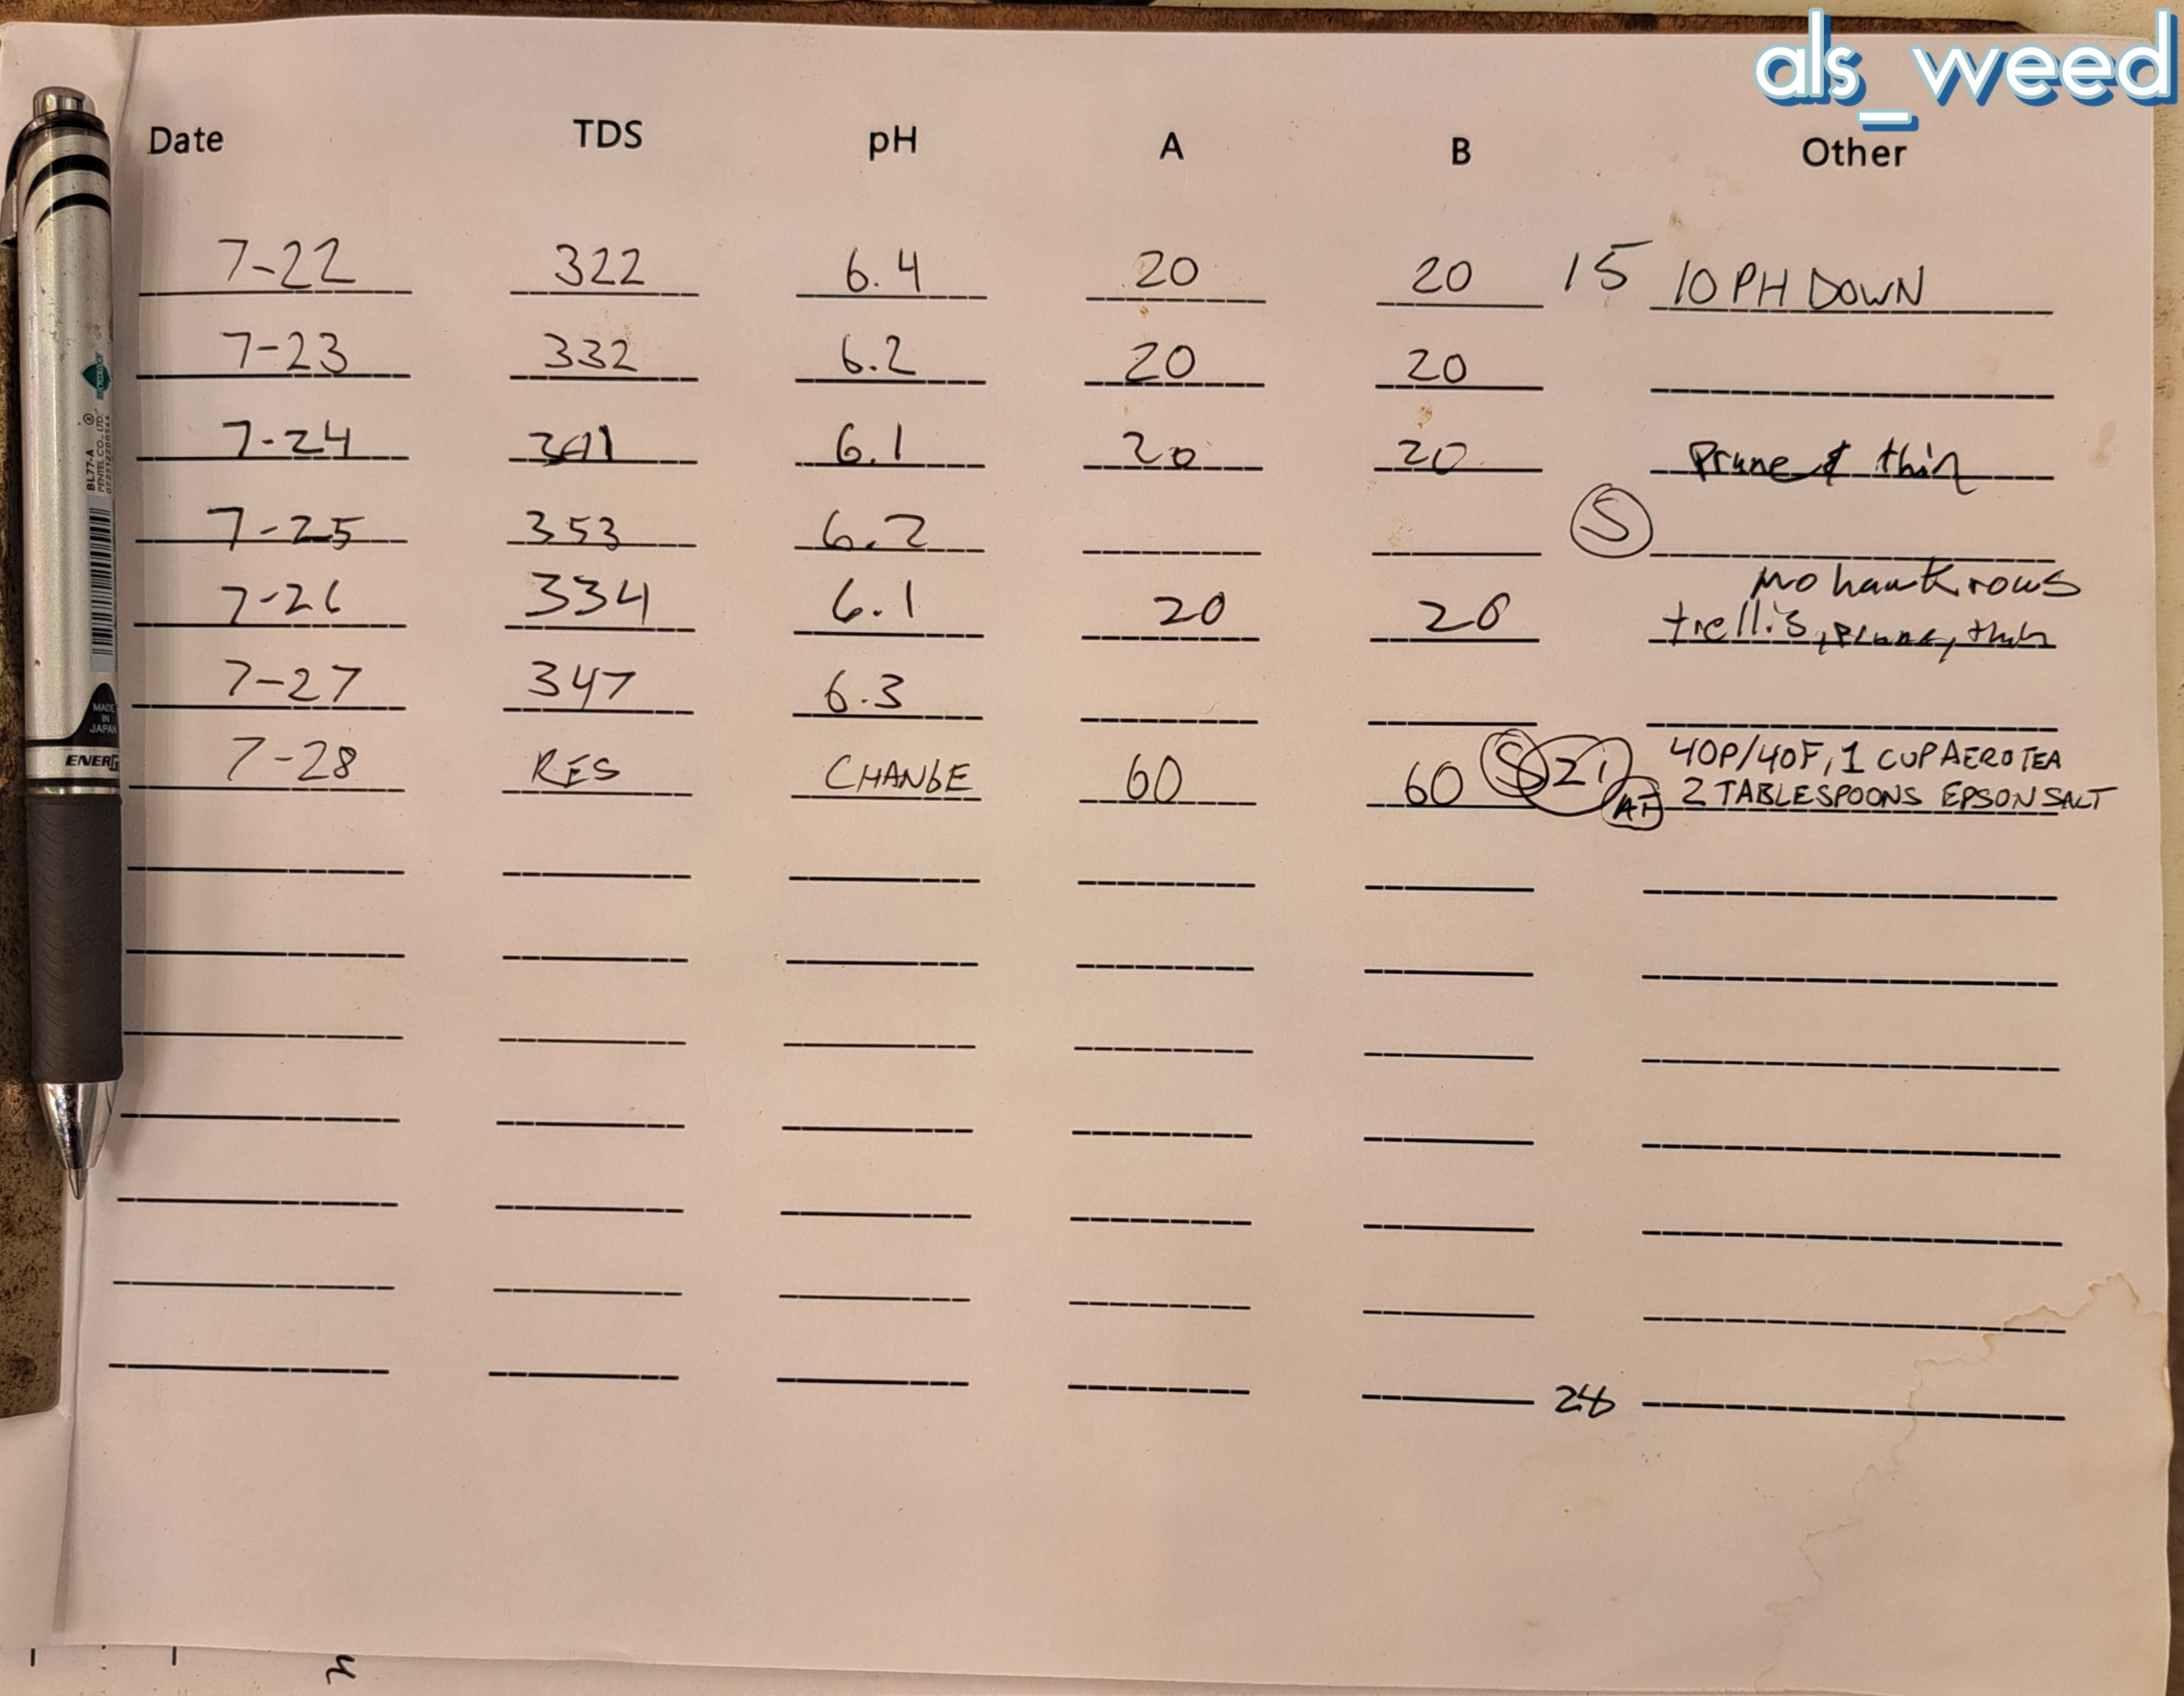 als_weed
Date TDS pH A B Other
7-22 322 6.4 20 20 15 10 PH DOWN
7-23 332 6.2 20 20
7-24 6.1 20 20 Prune & thin
7-25 353 6.2 S
mohawk rows
7-26 334 6.1 20 20 trellis, prune, thin
7-27 347 6.3
40P/40F, 1 CUP AERO TEA
7-28 RES CHANGE 60 60 S 21 2 TABLESPOONS EPSON SALT
28
BL77-A ®
PENTEL CO., LTD.
MADE
IN
JAPAN
ENERG